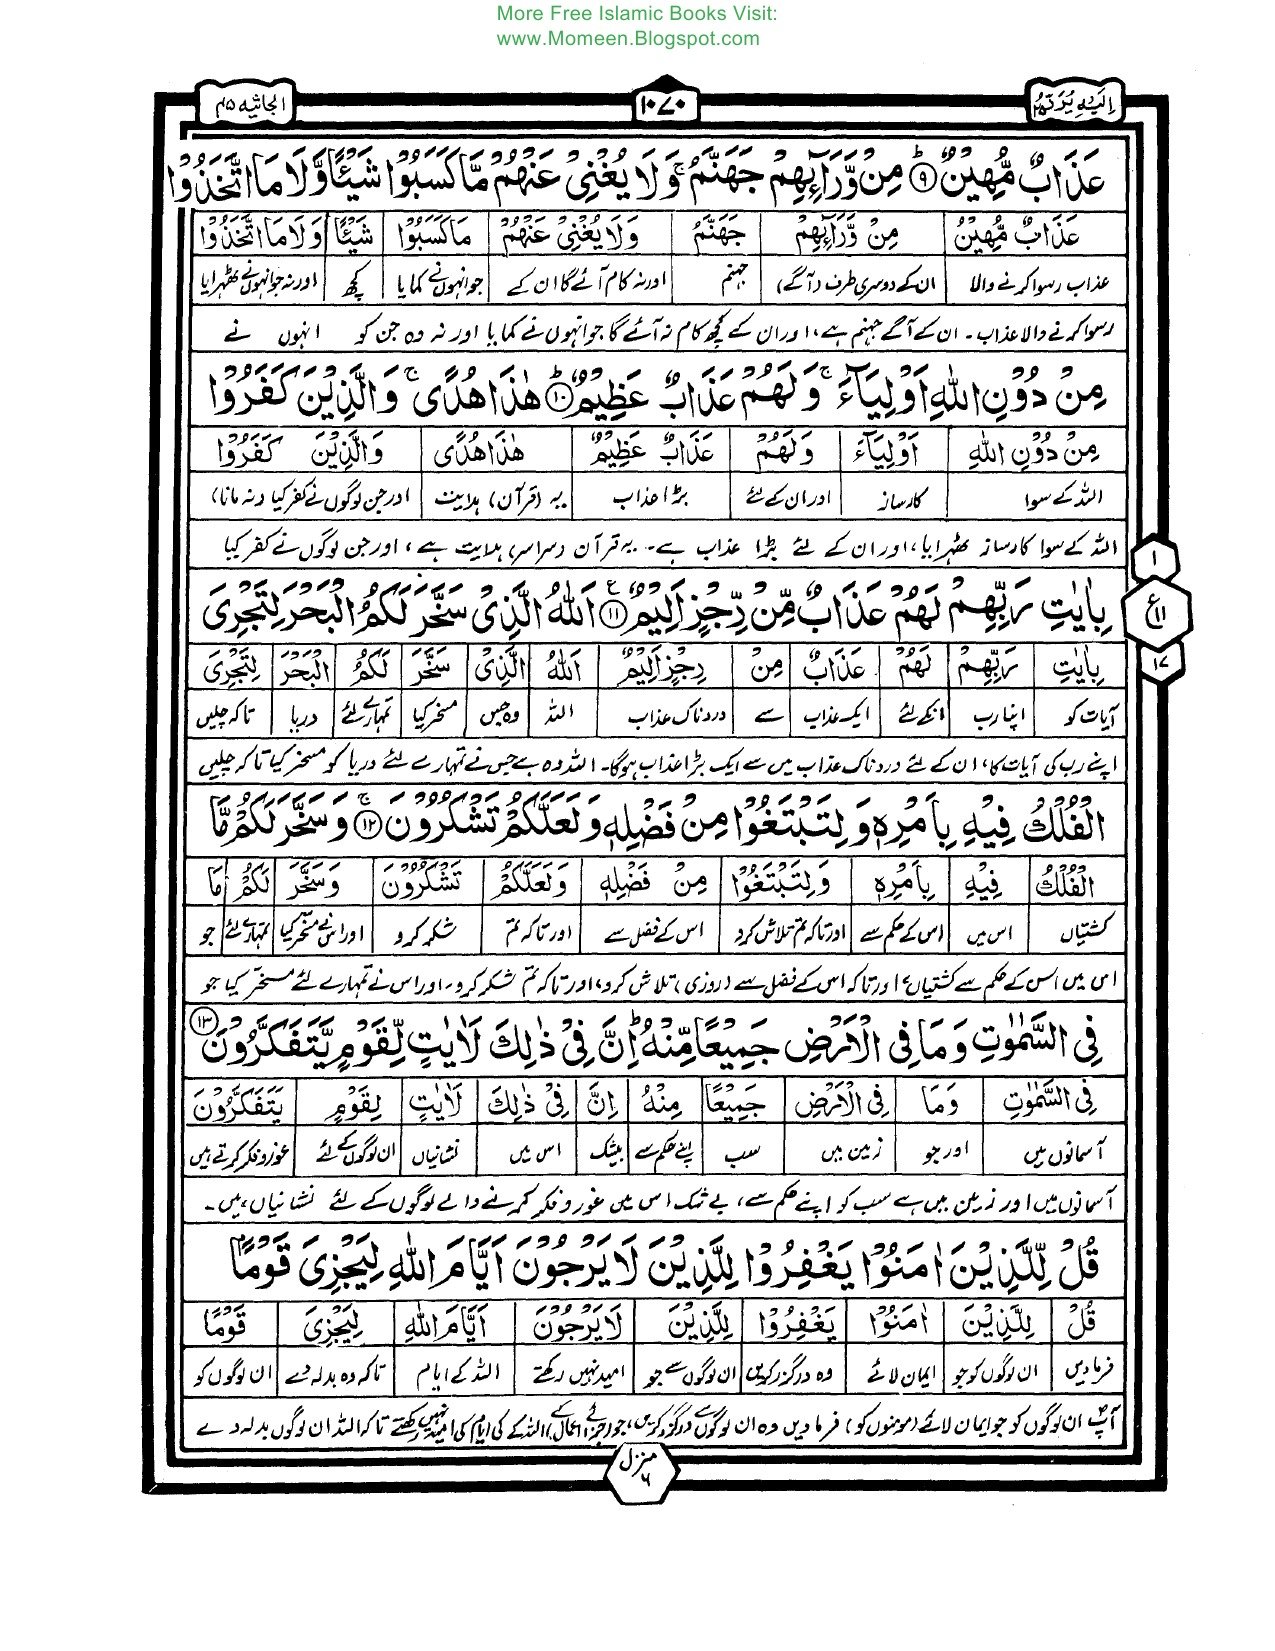 More Free Islamic Books Visit:
www.Momeen.Blogspot.com
الیہ یرد ۲۵ ۱۰۷۰ الجاثیہ ۴۵
عَذَابٌ مُّهِيْنٌ ۹ؕ مِنْ وَّرَآءِهِمْ جَهَنَّمُ ۚ وَلَا يُغْنِيْ عَنْهُمْ مَّا كَسَبُوْا شَيْـًٔا وَّلَا مَا اتَّخَذُوْا
عَذَابٌ مُّهِيْنٌ مِنْ وَّرَآءِهِمْ جَهَنَّمُ وَلَا يُغْنِيْ عَنْهُمْ مَا كَسَبُوْا شَيْـًٔا وَلَا مَا اتَّخَذُوْا
عذاب رسوا کرنے والا ان کے دوسری طرف (آگے) جہنم اور نہ کام آئے گا ان کے جو انہوں نے کمایا کچھ اور نہ جو انہوں نے ٹھہرایا
رسوا کرنے والا عذاب۔ ان کے آگے جہنم ہے، اور ان کے کچھ کام نہ آئے گا جو انہوں نے کمایا اور نہ وہ جن کو انہوں نے
مِنْ دُوْنِ اللّٰهِ اَوْلِيَآءَ ۚ وَلَهُمْ عَذَابٌ عَظِيْمٌ ۱۰ؕ هٰذَا هُدًى ۚ وَالَّذِيْنَ كَفَرُوْا
مِنْ دُوْنِ اللّٰهِ اَوْلِيَآءَ وَلَهُمْ عَذَابٌ عَظِيْمٌ هٰذَا هُدًى وَالَّذِيْنَ كَفَرُوْا
اللہ کے سوا کارساز اور ان کے لئے بڑا عذاب یہ (قرآن) ہدایت اور جن لوگوں نے کفر کیا (نہ مانا)
اللہ کے سوا کارساز ٹھہرایا، اور ان کے لئے بڑا عذاب ہے۔ یہ قرآن (سراسر) ہدایت ہے، اور جن لوگوں نے کفر کیا
بِاٰيٰتِ رَبِّهِمْ لَهُمْ عَذَابٌ مِّنْ رِّجْزٍ اَلِيْمٌ ۱۱ۧ اَللّٰهُ الَّذِيْ سَخَّرَ لَكُمُ الْبَحْرَ لِتَجْرِيَ
بِاٰيٰتِ رَبِّهِمْ لَهُمْ عَذَابٌ مِنْ رِجْزٍ اَلِيْمٌ اَللّٰهُ الَّذِيْ سَخَّرَ لَكُمُ الْبَحْرَ لِتَجْرِيَ
آیات کو اپنا رب انکے لئے ایک عذاب سے دردناک عذاب اللہ وہ جس مسخر کیا تمہارے لئے دریا تاکہ چلیں
اپنے رب کی آیات کا، ان کے لئے دردناک عذاب میں سے ایک بڑا عذاب ہوگا۔ اللہ وہ ہے جس نے تمہارے لئے دریا کو مسخر کیا تاکہ چلیں
الْفُلْكُ فِيْهِ بِاَمْرِهٖ وَلِتَبْتَغُوْا مِنْ فَضْلِهٖ وَلَعَلَّكُمْ تَشْكُرُوْنَ ۱۲ۚ وَسَخَّرَ لَكُمْ مَّا
الْفُلْكُ فِيْهِ بِاَمْرِهٖ وَلِتَبْتَغُوْا مِنْ فَضْلِهٖ وَلَعَلَّكُمْ تَشْكُرُوْنَ وَسَخَّرَ لَكُمْ مَا
کشتیاں اس میں اس کے حکم سے اور تاکہ تم تلاش کرو اس کے فضل سے اور تاکہ تم شکر کرو اور اس نے مسخر کیا تمہارے لئے جو
اس میں اس کے حکم سے کشتیاں، اور تاکہ اس کے فضل سے (روزی) تلاش کرو، اور تاکہ تم شکر کرو، اور اس نے تمہارے لئے مسخر کیا جو
فِي السَّمٰوٰتِ وَمَا فِي الْاَرْضِ جَمِيْعًا مِّنْهُ ؕ اِنَّ فِيْ ذٰلِكَ لَاٰيٰتٍ لِّقَوْمٍ يَّتَفَكَّرُوْنَ ۱۳
فِي السَّمٰوٰتِ وَمَا فِي الْاَرْضِ جَمِيْعًا مِنْهُ اِنَّ فِيْ ذٰلِكَ لَاٰيٰتٍ لِقَوْمٍ يَتَفَكَّرُوْنَ
آسمانوں میں اور جو زمین میں سب اپنے حکم سے بیشک اس میں نشانیاں ان لوگوں کے لئے غور و فکر کرتے ہیں
آسمانوں میں اور زمین میں ہے سب کو اپنے حکم سے، بے شک اس میں غور و فکر کرنے والے لوگوں کے لئے نشانیاں ہیں۔
قُلْ لِّلَّذِيْنَ اٰمَنُوْا يَغْفِرُوْا لِلَّذِيْنَ لَا يَرْجُوْنَ اَيَّامَ اللّٰهِ لِيَجْزِيَ قَوْمًۢا
قُلْ لِلَّذِيْنَ اٰمَنُوْا يَغْفِرُوْا لِلَّذِيْنَ لَا يَرْجُوْنَ اَيَّامَ اللّٰهِ لِيَجْزِيَ قَوْمًا
فرمادیں ان لوگوں کو جو ایمان لائے وہ درگزر کریں ان لوگوں سے جو امید نہیں رکھتے اللہ کے ایام تاکہ وہ بدلہ دے ان لوگوں کو
آپؐ ان لوگوں کو جو ایمان لائے (مومنوں کو) فرمادیں وہ ان لوگوں سے درگزر کریں، جو (جزائے اعمال کے) اللہ کے ایام کی امید نہیں رکھتے تاکہ اللہ ان لوگوں بدلہ دے
۱
ع ۱۱
۱۷
منزل ۶